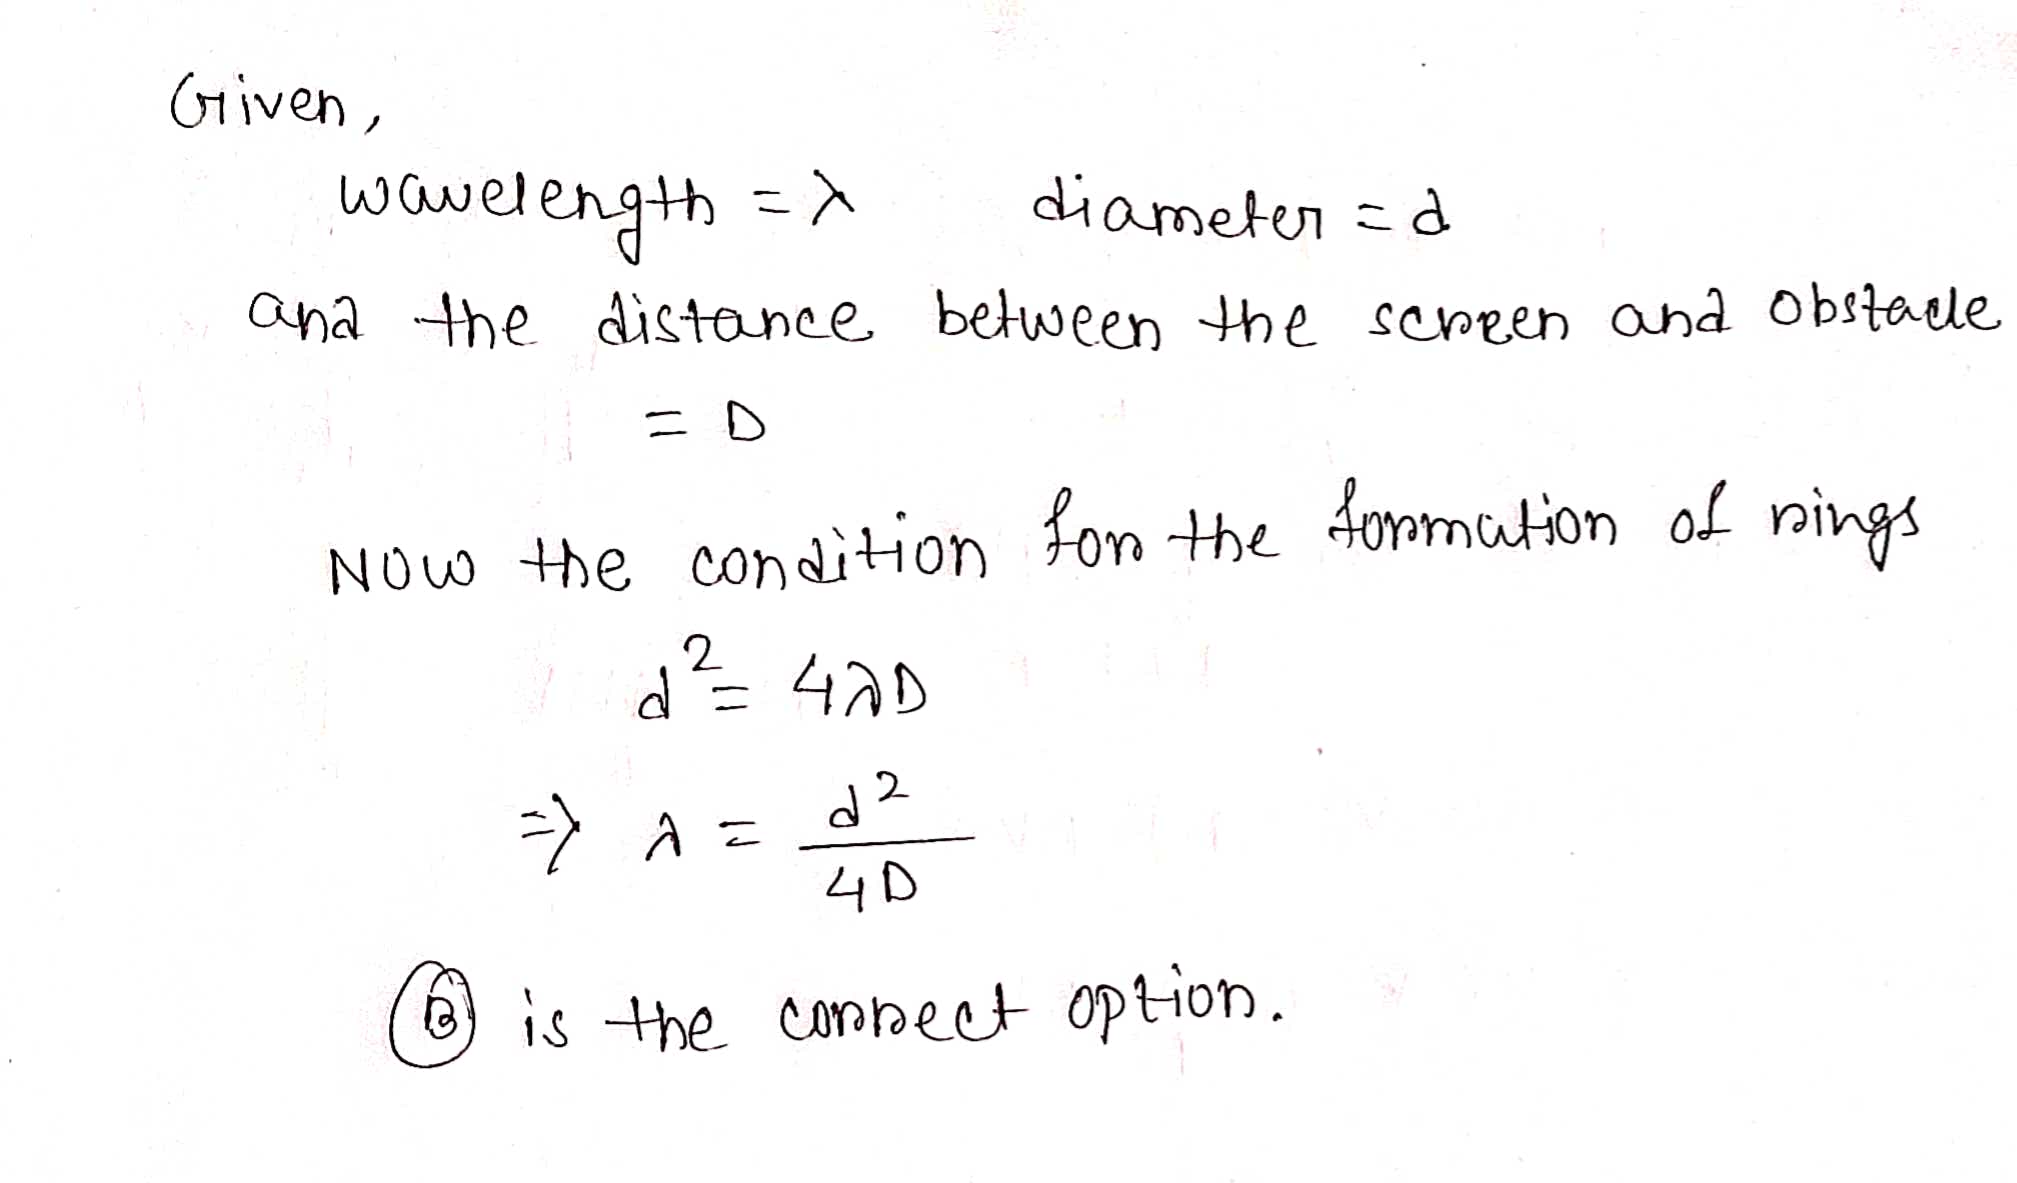 Given,
wavelength = λ diameter = d
and the distance between the screen and obstacle
= D
Now the condition for the formation of rings
d² = 4λD
⇒ λ = d² / 4D
(B) is the correct option.